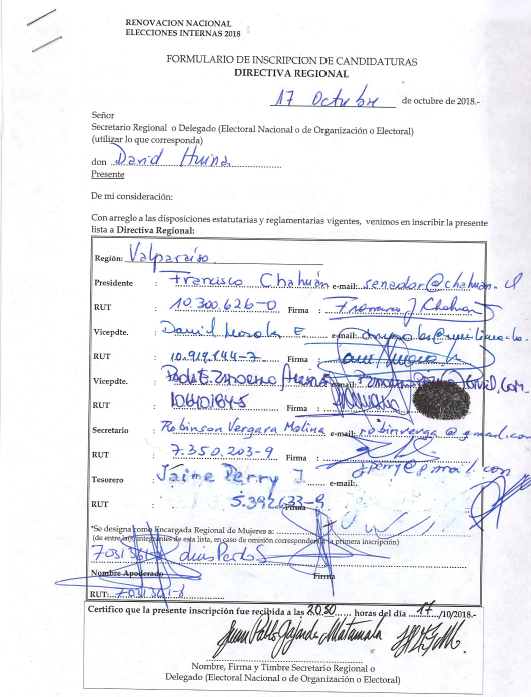 RENOVACION NACIONAL
ELECCIONES INTERNAS 2018
FORMULARIO DE INSCRIPCION DE CANDIDATURAS
DIRECTIVA REGIONAL
17 Octubre de octubre de 2018.-
Señor
Secretario Regional o Delegado (Electoral Nacional o de Organización o Electoral)
(utilizar lo que corresponda)
don David Huina
Presente
De mi consideración:
Con arreglo a las disposiciones estatutarias y reglamentarias vigentes, venimos en inscribir la presente
lista a Directiva Regional:
Región: Valparaíso
Presidente : Francisco Chahuán e-mail: senador@chahuan.cl
RUT : 10.300.626-0 Firma : Francisco J Chahuan
Vicepdte. : David e-mail:
RUT : Firma :
Vicepdte. : e-mail:
RUT : Firma :
Secretario : Robinson Vergara Molina e-mail: robinverga@gmail.com
RUT : 7.350.203-9 jperry@gmail.com
Tesorero : Jaime Perry J. e-mail:
RUT 5.392.633-9 Firma
*Se designa como Encargada Regional de Mujeres a:
(de entre las integrantes de esta lista, en caso de omisión corresponderá a la primera inscripción)
Luis Pardo S
Nombre Apoderado Firma
RUT:
Certifico que la presente inscripción fue recibida a las 20.50 horas del día 17 /10/2018.-
Juan Pablo Gajardo Matamala
Nombre, Firma y Timbre Secretario Regional o
Delegado (Electoral Nacional o de Organización o Electoral)